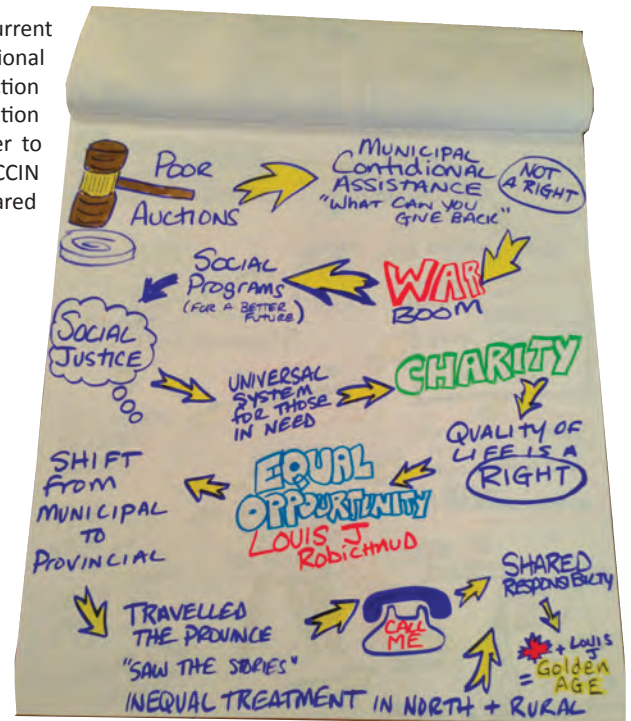 urrent
ional
ction
tion
er to
CCIN
ared
POOR
AUCTIONS
MUNICIPAL
CONTIDIONAL
ASSISTANCE
"WHAT CAN YOU
GIVE BACK"
NOT
A RIGHT
WAR
BOOM
SOCIAL
PROGRAMS
(FOR A BETTER
FUTURE)
SOCIAL
JUSTICE
UNIVERSAL
SYSTEM
FOR THOSE
IN NEED
CHARITY
QUALITY OF
LIFE IS A
RIGHT
EQUAL
OPPOURTUNITY
LOUIS J
ROBICHAUD
SHIFT
FROM
MUNICIPAL
TO
PROVINCIAL
TRAVELLED
THE PROVINCE
"SAW THE STORIES"
CALL
ME
SHARED
RESPONSIBILTY
+ LOUIS
J
= Golden
AGE
INEQUAL TREATMENT IN NORTH + RURAL